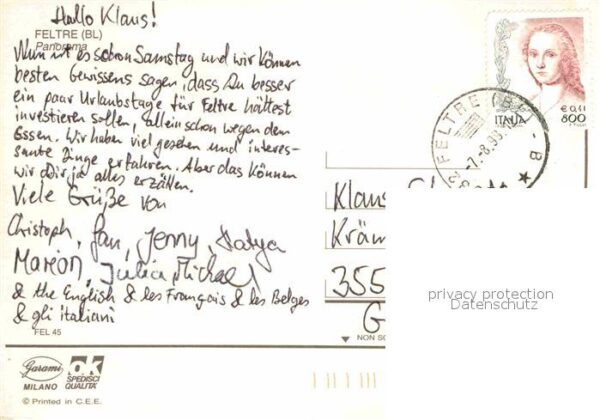 Hallo Klaus!
FELTRE (BL)
Panorama
Nun ist es schon Samstag und wir können
besten Gewissens sagen, dass Du besser
ein paar Urlaubstage für Feltre hättest
investieren sollen, allein schon wegen dem
Essen. Wir haben viel gesehen und interes-
sante Dinge erfahren. Aber das können
wir Dir ja alles erzählen.
Viele Grüße von
Christoph, Jan, Jenny, Katya
Marion, Julia, Michael
& the English & les Français & les Belges
& gli italiani
FEL 45
Garami
MILANO
OK
SPEDISCI
QUALITÀ
© Printed in C.E.E.
ITALIA
€ 0,41
800
FELTRE (BL)
-7.-8.99
Klaus
Kräm
355
G
NON SC
privacy protection
Datenschutz